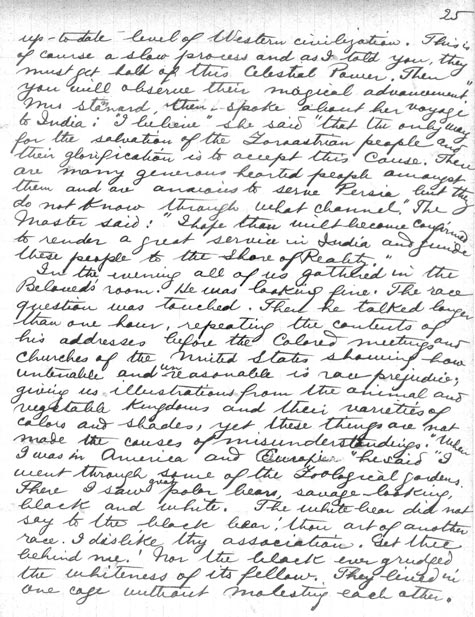 25
up-to-date level of Western civilization. This is
of course a slow process and as I told you, they
must get hold of this Celestial Power. Then
you will observe their magical advancement."
Mrs Stanard then spoke about her voyage
to India: "I believe" she said "that the only way
for the salvation of the Zoroastrian people and
their glorification is to accept this Cause. There
are many generous hearted people amongst
them and are anxious to serve Persia but they
do not know through what channel." The
Master said: "I hope thou wilt become confirmed
to render a great service in India and guide
these people to the Shore of Reality."
In the evening all of us gathered in the
Beloved's room. He was looking fine. The race
question was touched. Then he talked longer
than one hour, repeating the contents of
his addresses before the Colored meetings and
churches of the United States showing how
untenable and unreasonable is race prejudice;
giving us illustrations from the animal and
vegetable kingdoms and their varieties of
colors and shades, yet these things are not
made the causes of misunderstandings. "When
I was in America and Europe" he said "I
went through some of the Zoological gardens.
There I saw great polar bears, savage-looking,
black and white. The white bear did not
say to the black bear: thou art of another
race. I dislike thy association. Get thee
behind me! Nor the black ever grudged
the whiteness of its fellow. They lived in
one cage without molesting each other.